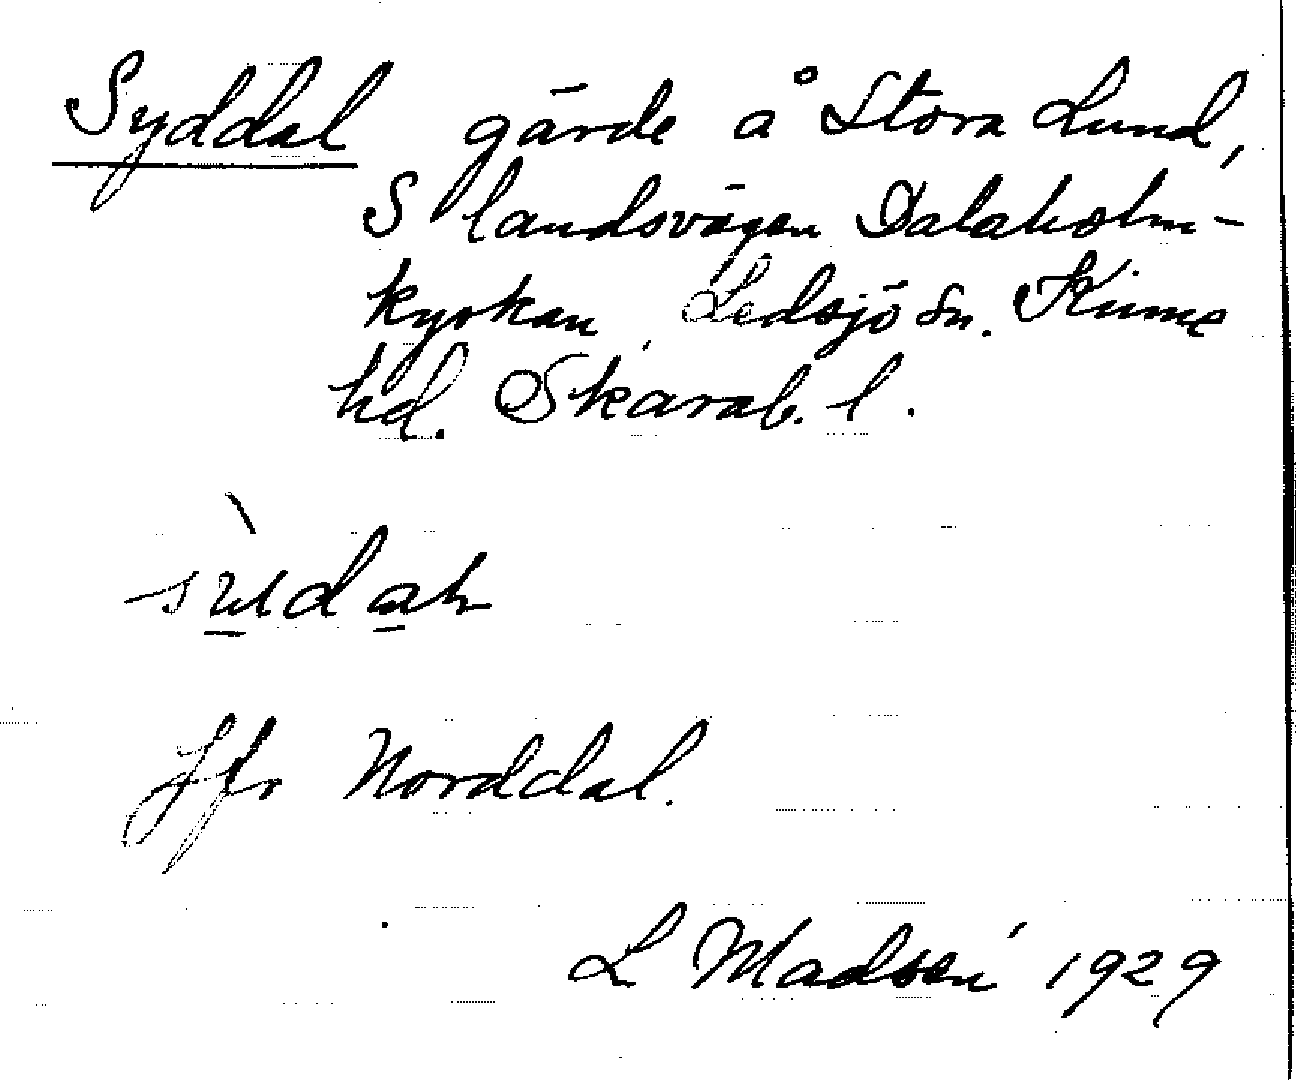 Syddal gärde å Stora Lund,
S landsvägen Dalaholm-
kyrkan, Ledsjö sn. Kinne
hd. Skarab. l.
Jfr Norddal.
L Madsén 1929